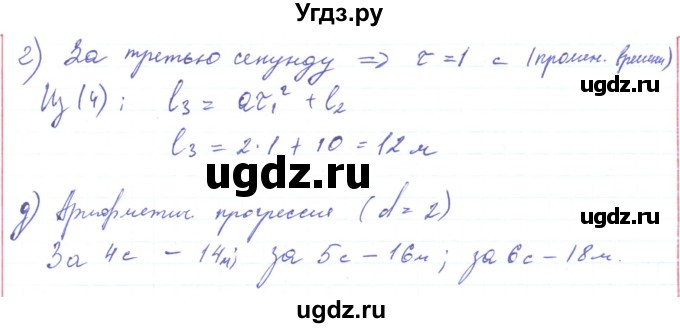 Угдз.ру
г) За третью секунду => τ = 1 с (промеж. времени)
Из (4): l₃ = aτ₁² + l₂
l₃ = 2·1 + 10 = 12 м
ugdz.ru
ugdz.ru
д) Арифметич. прогрессия (d = 2)
За 4с – 14м; за 5с – 16м; за 6с – 18м.
ugdz.ru
ugdz.ru